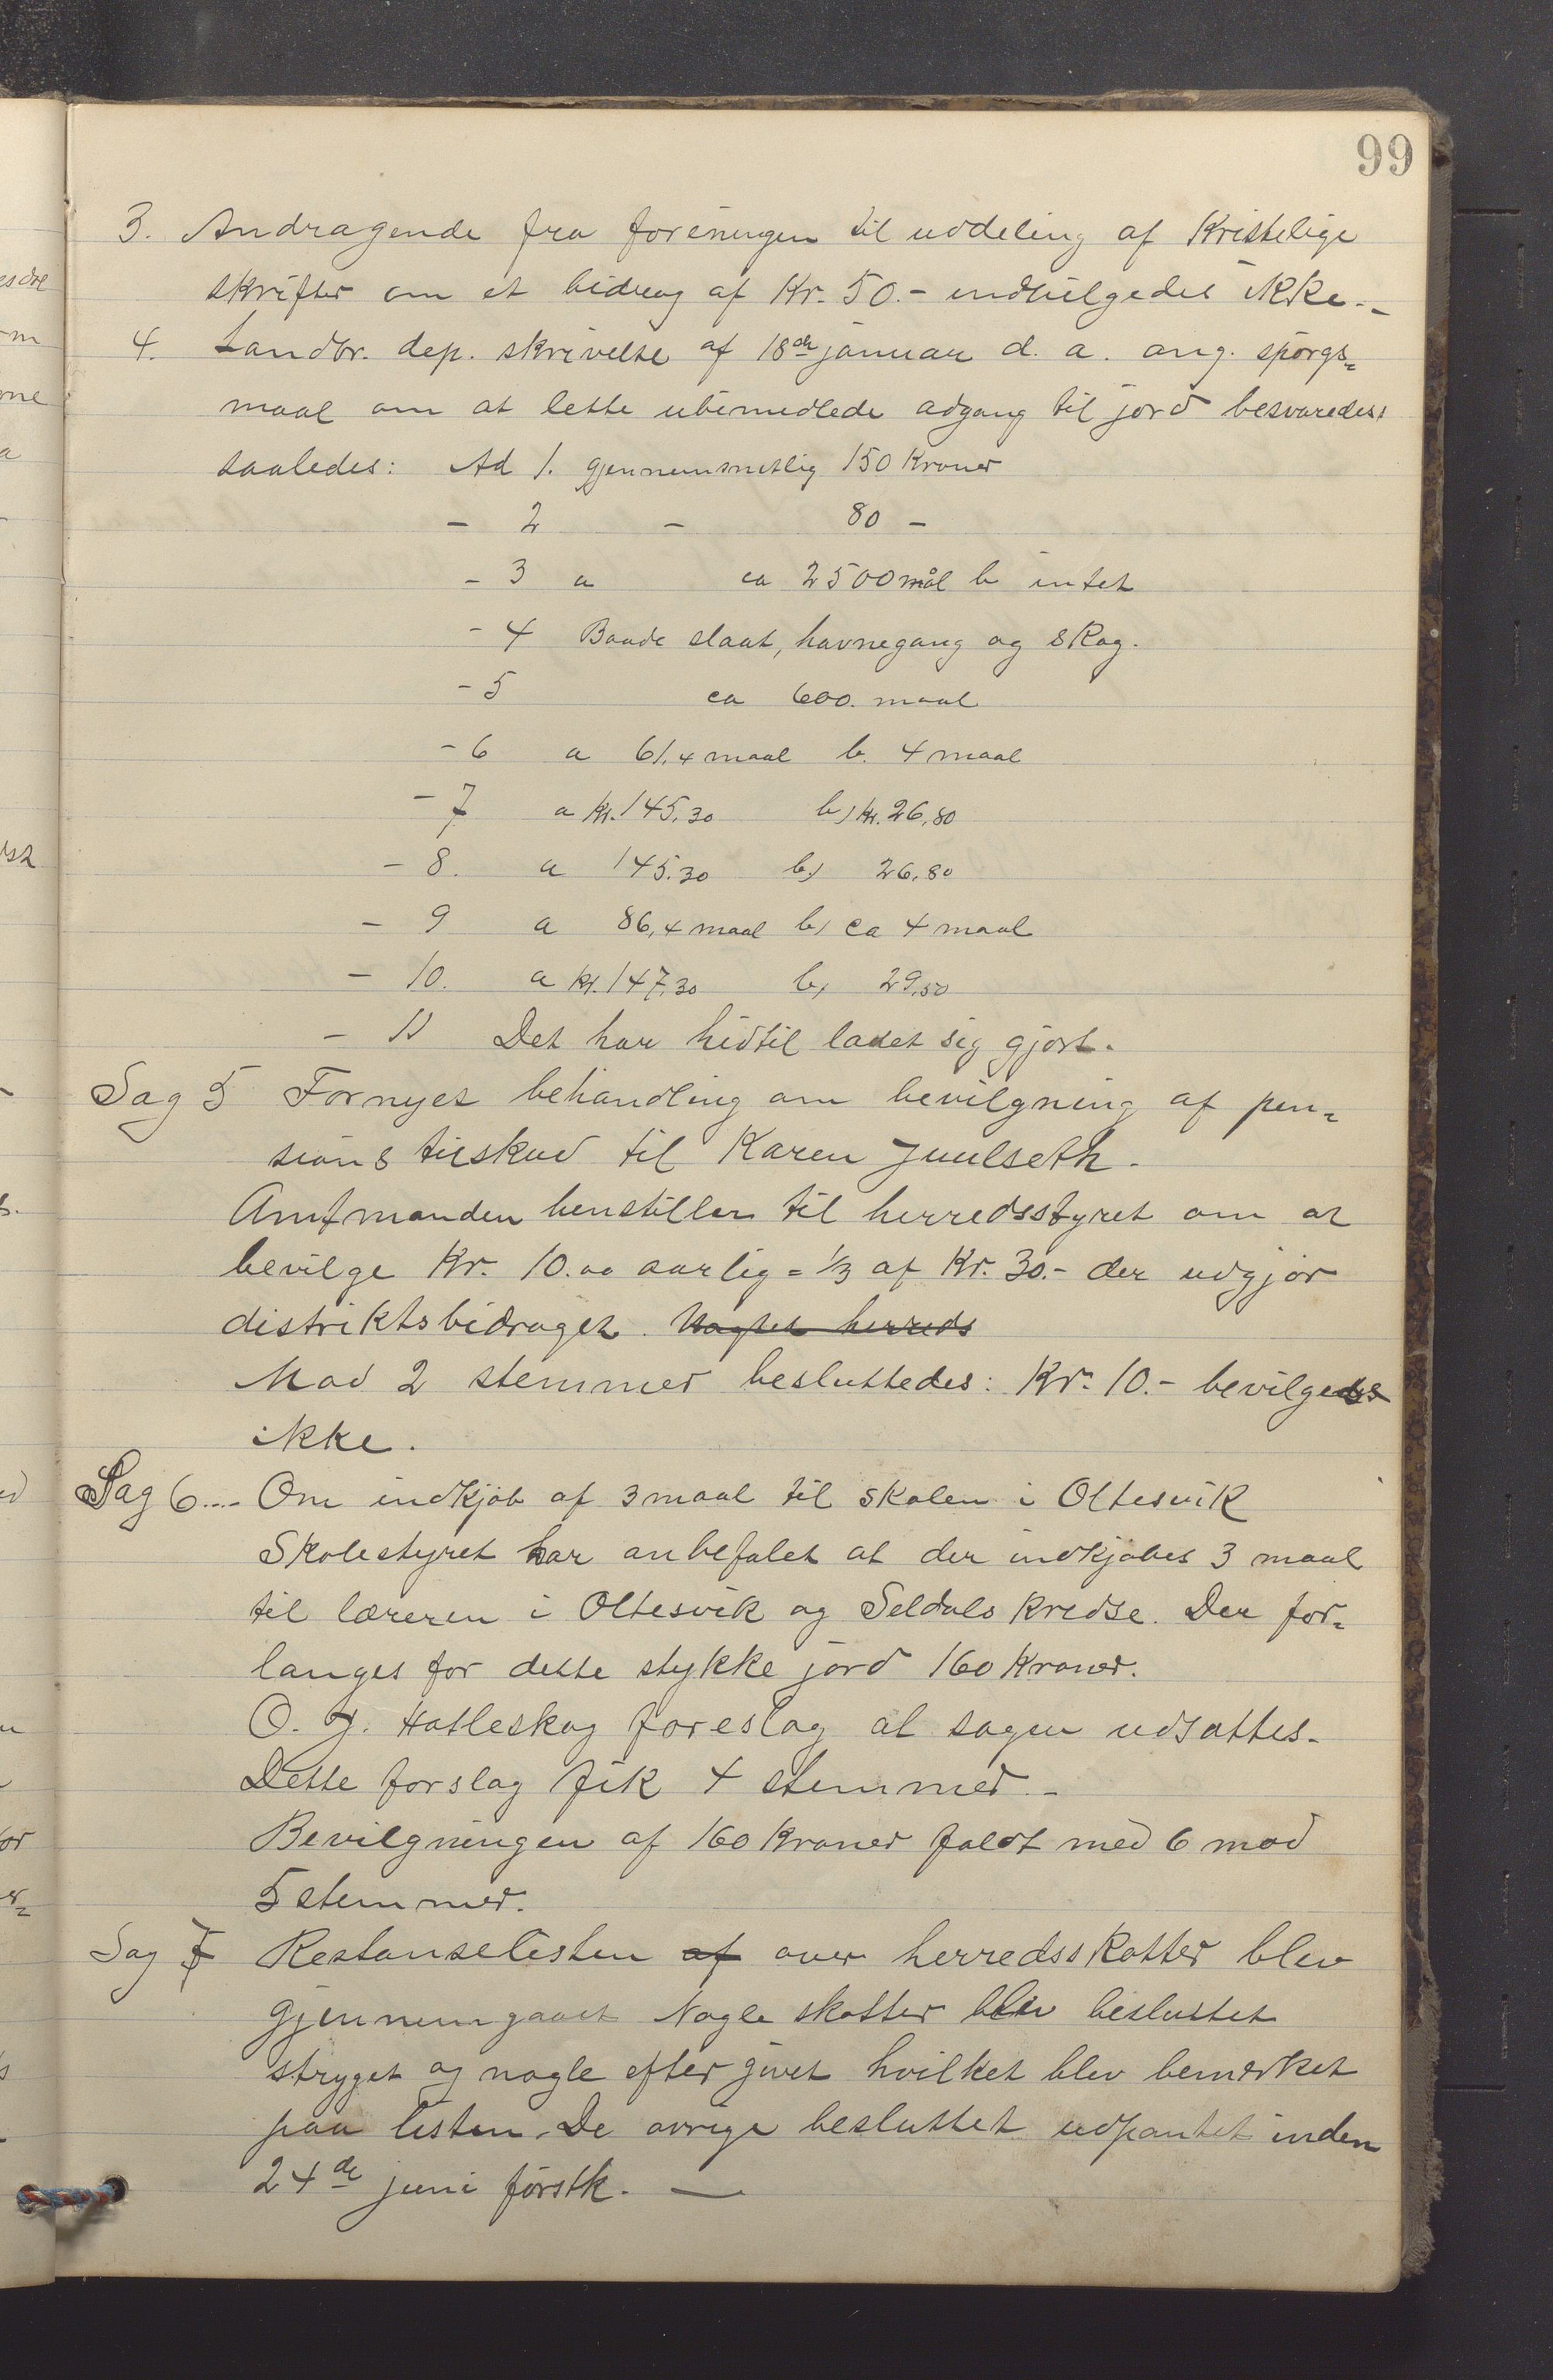 99
3. Andragende fra foreningen til uddeling af Kristelige
skrifter om et bidrag af Kr. 50.- indvilgedes ikke.-
4. Landbr. dep. skrivelse af 18de januar d. a. ang. spørgs=
maal om at lette ubemedlede adgang til jord besvaredes
saaledes: Ad 1. gjennemsnitlig 150 Kroner
- 2 - 80 -
- 3 a ca 2500 mål b intet
- 4 Baade slaat, havnegang og skog.
- 5 ca 600. maal
- 6 a 61,4 maal b. 4 maal
- 7 a kr. 145,30 b) kr. 26,80
- 8. a 145.30 b) 26,80
- 9 a 86,4 maal b) ca 4 maal
- 10. a kr. 147,30 b) 29,50
- 11 Det har hidtil ladet sig gjort.
Sag 5 Fornyet behandling om bevilgning af pen=
sions tilskud til Karen Juulseth.
Amtmanden henstiller til herredsstyret om at
bevilge Kr. 10.00 aarlig = 1/3 af Kr. 30.- der udgjør
distriktsbidraget. herreds
Mod 2 stemmer besluttedes: Kr. 10.- bevilgedes
ikke.
Sag 6... Om indkjøb af 3 maal til skolen i Oltesvik
Skolestyret har anbefalet at der indkjøbes 3 maal
til læreren i Oltesvik og Seldals kredse. Der for=
langes for dette stykke jord 160 Kroner.
O. J. Hatleskog foreslog at sagen udsattes.
Dette forslag fik 4 stemmer.-
Bevilgningen af 160 Kroner faldt med 6 mod
5 stemmer.
Sag 7 Restanselisten af over herredsskatter blev
gjennemgaaet Nogle skatter blev besluttet
strøget og nogle eftergivet hvilket blev bemerket
paa listen. De øvrige besluttet udpantet inden
24de juni førstk. —